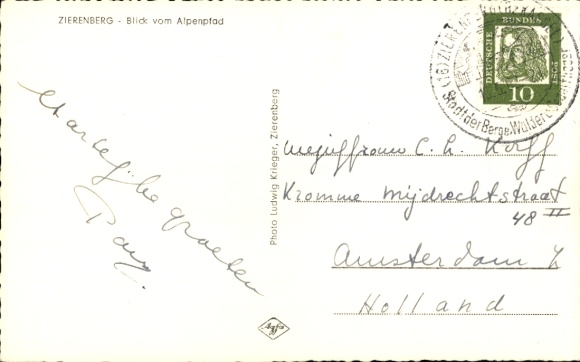 ZIERENBERG - Blick vom Alpenpfad
Hartelijke groeten
Photo Ludwig Krieger, Zierenberg
DEUTSCHE BUNDESPOST
10
(16) ZIERENBERG
Stadt der Berge, Wälder
Mejuffrouw C. h. Korff
Kromme Mijdrechtstraat
48 II
Amsterdam Z
Holland
Agfa